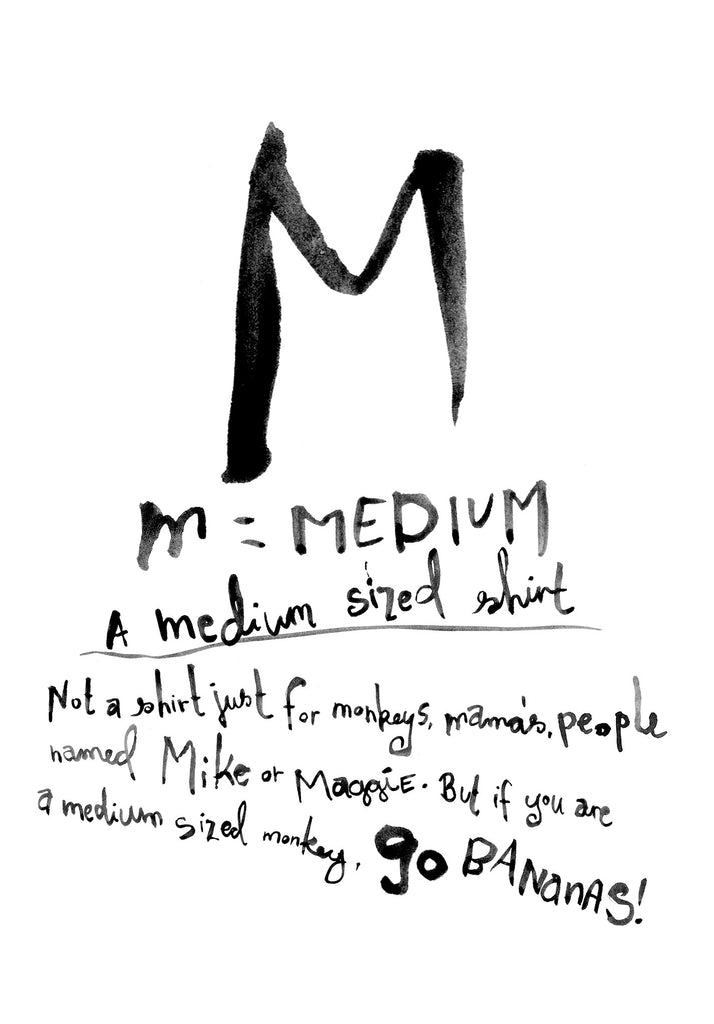 M
m = MEDIUM
A medium sized shirt
Not a shirt just for monkeys, mama's, people
named Mike or Maggie. But if you are
a medium sized monkey, go BANanAS!